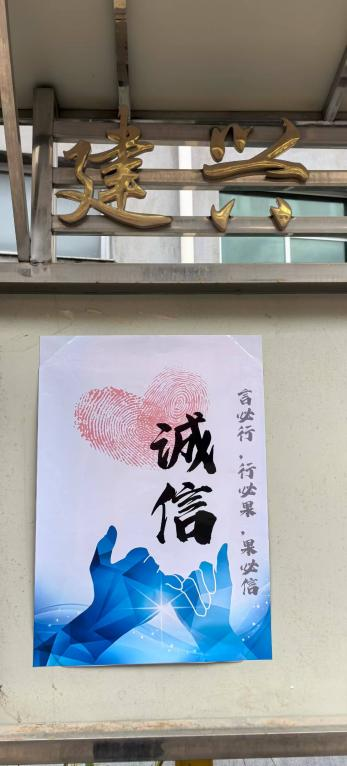 建兴
诚信
言必行，行必果，果必信